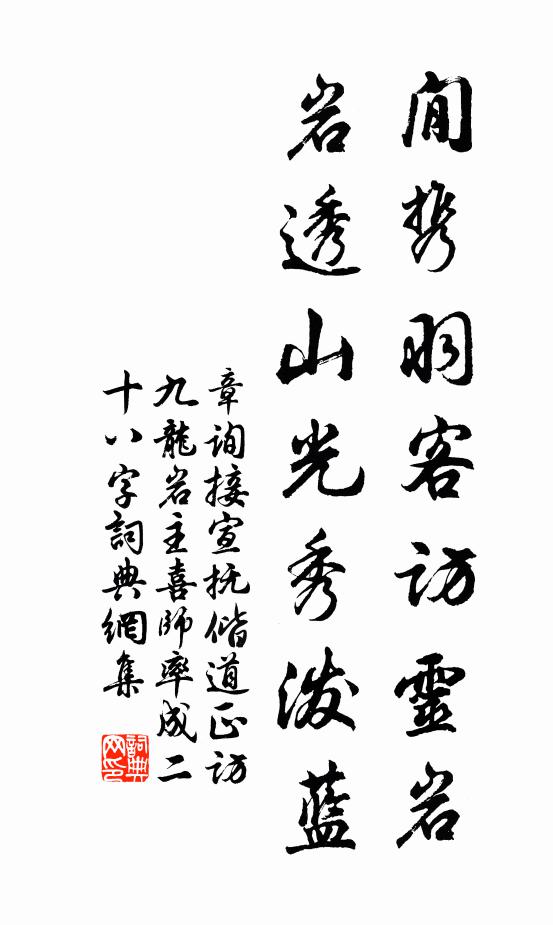 閒携羽客访靈岩
岩透山光秀泼藍
章询接宣抚偕道正访
九龍岩主喜师率成二
十八字詞典網集
詞典网印